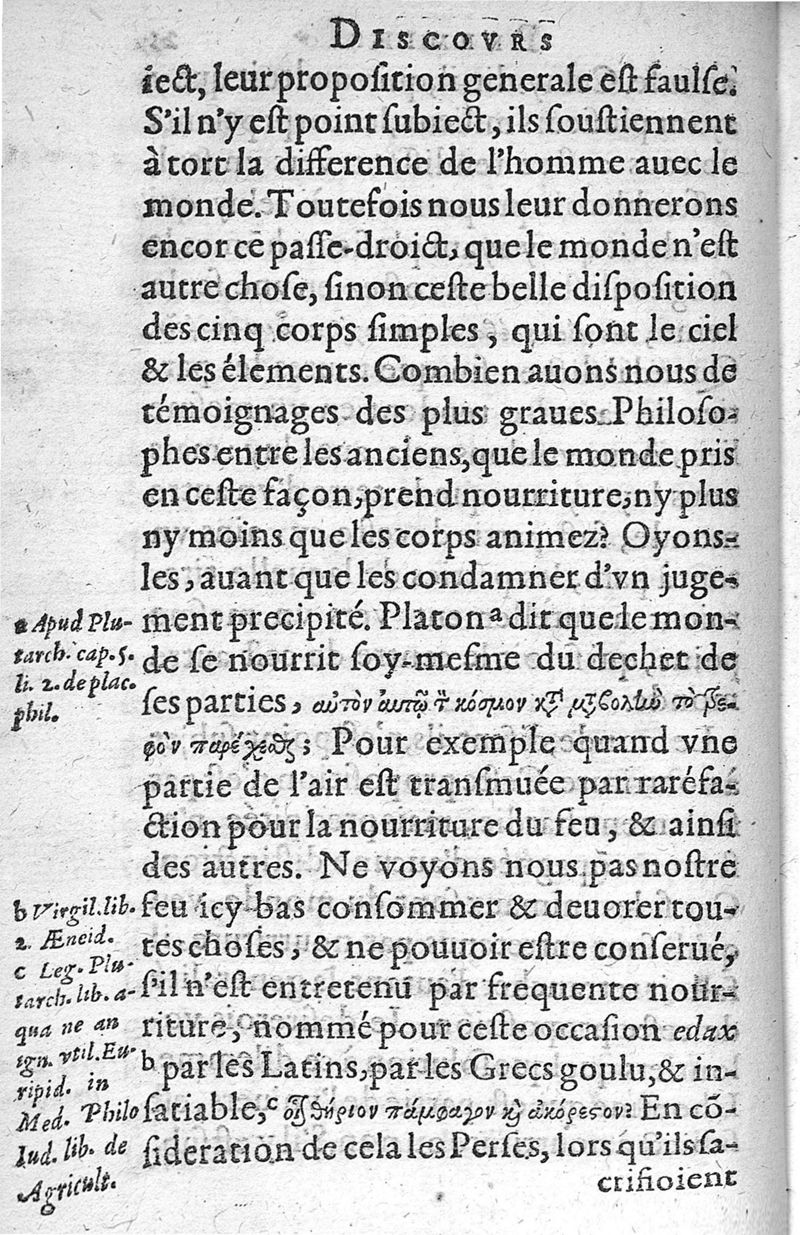 DISCOVRS
iect, leur proposition generale est faulse.
S'il n'y est point subiect, ils soustiennent
à tort la difference de l'homme auec le
monde. Toutefois nous leur donnerons
encor ce passe-droict, que le monde n'est
autre chose, sinon ceste belle disposition
des cinq corps simples, qui sont le ciel
& les élements. Combien auons nous de
témoignages des plus graues Philoso-
phes entre les anciens, que le monde pris
en ceste façon, prend nourriture, ny plus
ny moins que les corps animez? Oyons-
les, auant que les condamner d'vn juge-
ment precipité. Platon a dit que le mon-
de se nourrit soy-mesme du dechet de
ses parties, αὐτὸν αὑτῷ τ̀ κόσμον κτ̀ μεταβολὴν τὸ τρε-
φὸν παρέχεσθαι; Pour exemple quand vne
partie de l'air est transmuée par raréfa-
ction pour la nourriture du feu, & ainsi
des autres. Ne voyons nous pas nostre
feu icy bas consommer & deuorer tou-
tes choses, & ne pouuoir estre conserué,
s'il n'est entretenu par frequente nour-
riture, nommé pour ceste occasion edax
b par les Latins, par les Grecs goulu, & in-
satiable, c θηρίον πάμφαγον κὶ ἀκόρεστον? En cõ-
sideration de cela les Perses, lors qu'ils sa-
crifioient
a Apud Plu-
tarch. cap. 5.
li. 2. de plac.
phil.
b Virgil. lib.
2. Æneid.
c Leg. Plu-
tarch. lib. a-
qua ne an
ign. vtil. Eu-
ripid. in
Med. Philo
Iud. lib. de
Agricult.